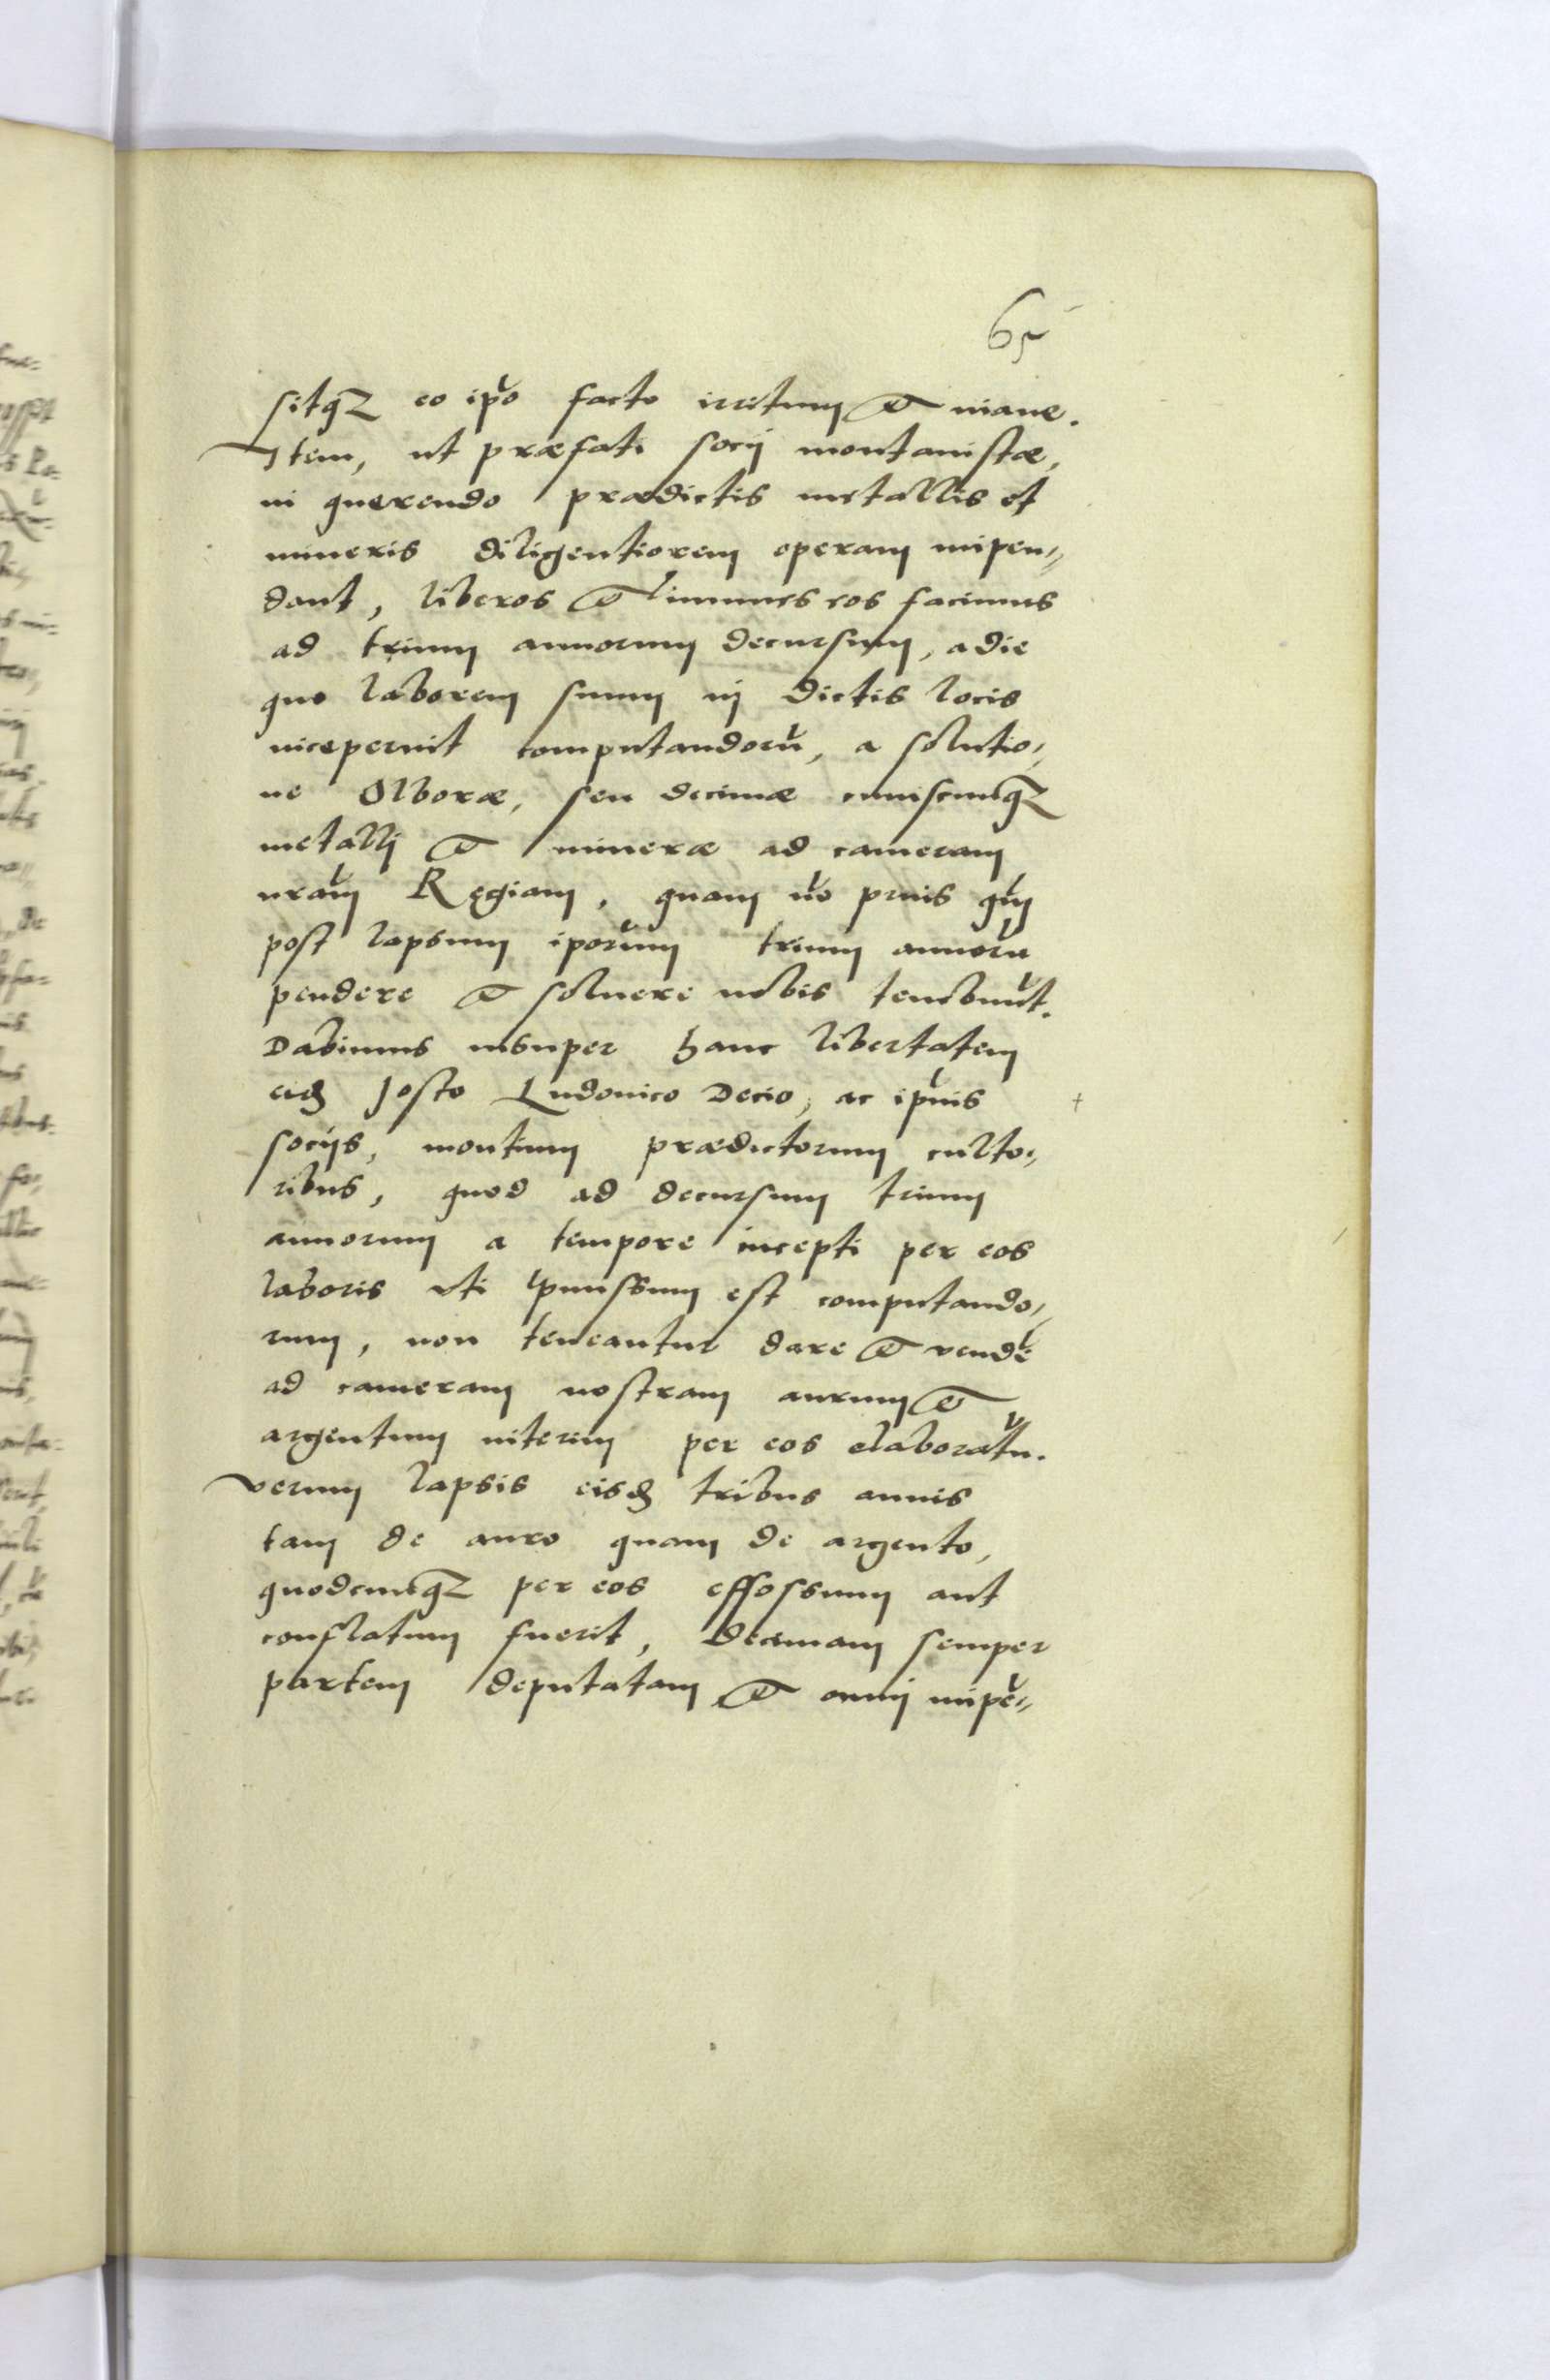 65
sitq3 eo ipo facto irritum et inane.
Item, ut præfati socij montanistæ,
in querendo prædictis metallis et
mineris diligentiorem operam impen=
dant, liberos et immunes eos facimus
ad trium annorum decursum, a die
quo laborem suum in dictis locis
inceperint computandorū, a solutio=
ne Olboræ, seu decimæ cuiuscumq3
metalli et mineræ ad cameram
nram Regiam, quam no prius qm
post lapsum iporum trium annorū
pendere et solvere nobis tenebunt.
Dabimus insuper hanc libertatem
eid Josto Ludovico Decio, ac ipius
socijs, montium prædictorum culto=
ribus, quod ad decursum trium
annorum a tempore incepti per eos
laboris uti pmissum est computando=
rum, non teneantur dare et vende
ad cameram nostram aurum et
argentum interim per eos elaboratū.
verum lapsis eisd tribus annis
tam de auro quam de argento,
quodcumq3 per eos effossum aut
conflatum fuerit, decimam semper
partem deputatam et omnj impe=